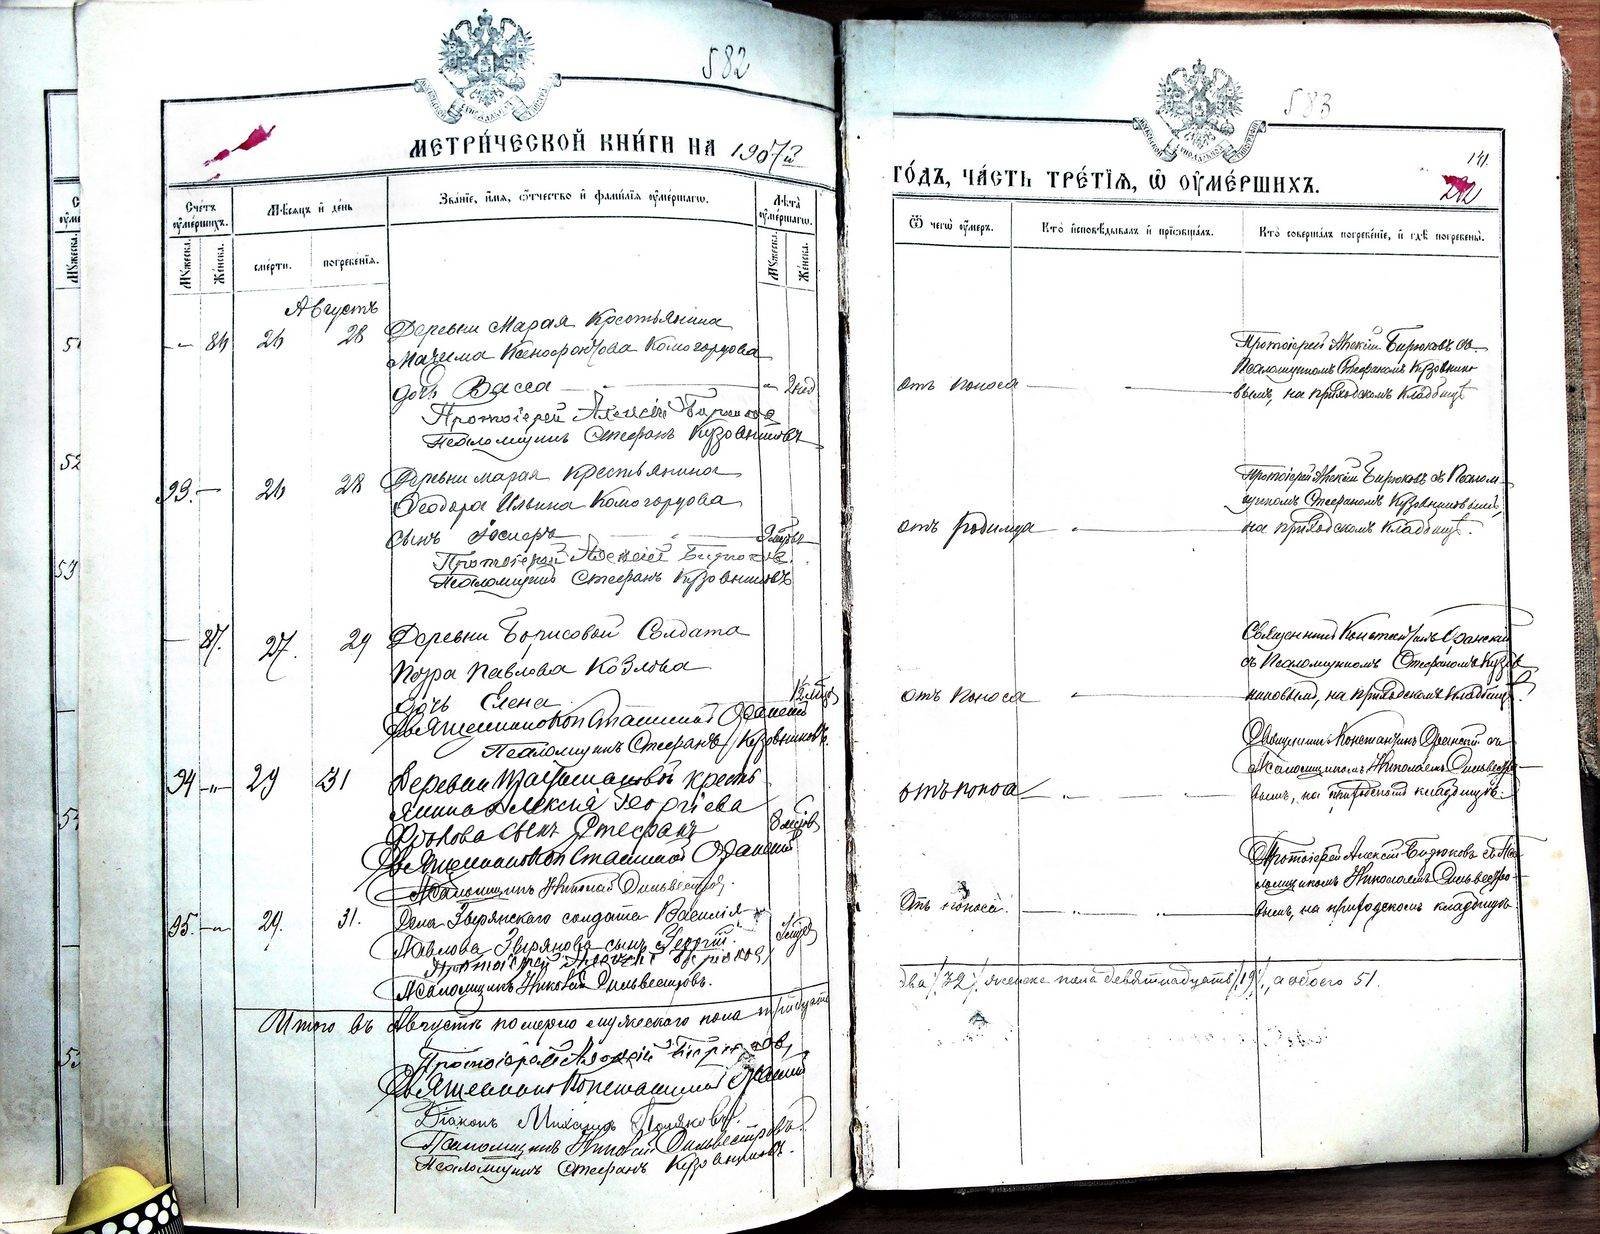 582
МЕТРИ́ЧЕСКОЙ КНИ́ГИ НА 1907й
Счетъ ѹмершихъ.
Мѣсяцъ и день
Званіе, имя, отчество и фамилія ѹмершаго.
Лѣта ѹмершаго.
Мꙋжеска. Женска.
смерти. погребенія.
Мꙋжеска. Женска.
Августъ
26 28 Деревни Марая Крестьянина
Ксенофонтова Комогорцова
дочь Васса — " 2 год
Протоіерей Алексій Бирюков
Псаломщикъ Стефанъ Кузовников
93. — 26 28 Деревни Марая Крестьянина
Ѳеодора Ильина Комогорцова
сынъ
Протоіерей Алексій Бирюков.
Псаломщикъ Стефанъ Кузовниковъ
— 87. 27. 29 Деревни Борисовой Солдата
Павлова Козлова
дочь Елена
Священник Константинъ
Псаломщикъ Стефанъ Кузовниковъ.
94 —"— 29 31 Деревни кресть
янина Алексія Георгіева
Фролова сынъ Стефанъ 8 мѣсяц
Священник Константинъ
Псаломщикъ Николай Сильвестров.
95. —"— 29. 31. Села Зырянского солдата Василія
Павлова Зырянова сынъ Георгій.
Протоіерей Алексій Бирюков
Псаломщикъ Николай Сильвестровъ.
Итого въ Августѣ померло мужеского пола тридцать
Протоіерей Алексій Бирюков,
Священник Константинъ
Діаконъ Михаилъ Поляковъ
Псаломщикъ Николай Сильвестровъ.
Псаломщикъ Стефанъ Кузовниковъ.
583
141.
ГО́ДЪ, ЧА́СТЬ ТРЕ́ТІЯ, Ѡ ОУМЕ́РШИХЪ.
Ѿ чегѡ ѹмеръ.
Кто исповѣдывалъ и пріобщалъ.
Кто совершалъ погребеніе, и гдѣ погребены.
Протоіерей Алексій Бирюковъ съ
отъ поноса — Псаломщикомъ Стефаномъ Кузовнико
вымъ, на приходскомъ кладбищѣ
Протоіерей Алексій Бирюковъ съ Псалом-
щикомъ Стефаномъ Кузовниковымъ,
отъ родимца — " — на приходскомъ кладбищѣ.
Священникъ Константинъ
съ Псаломщикомъ Стефаномъ Кузов
отъ поноса — " — никовымъ, на приходскомъ кладбищѣ.
Священникъ Константинъ съ
Псаломщикомъ Николаемъ Сильвестро
отъ поноса — " — " — вымъ, на приходскомъ кладбищѣ.
Протоіерей Алексій Бирюковъ съ Пса
ломщикомъ Николаемъ Сильвестро-
Отъ поноса. — " — " — вымъ, на приходскомъ кладбищѣ.
два /32/, женска пола девятнадцать /19/, а обоего 51.